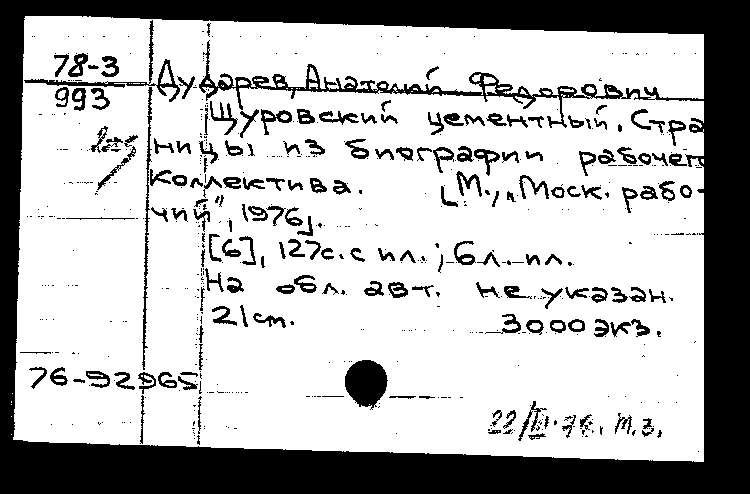 78-3
993
Дударев, Анатолий Федорович
Щуровский цементный. Стра
ницы из биографии рабочег
коллектива. [М., „Моск. рабо-
чий", 1976].
[6], 127с. с ил.; 6 л. ил.
На обл. авт. не указан.
21 cm. 3000 экз.
76-92965
22/ .78. М.З.